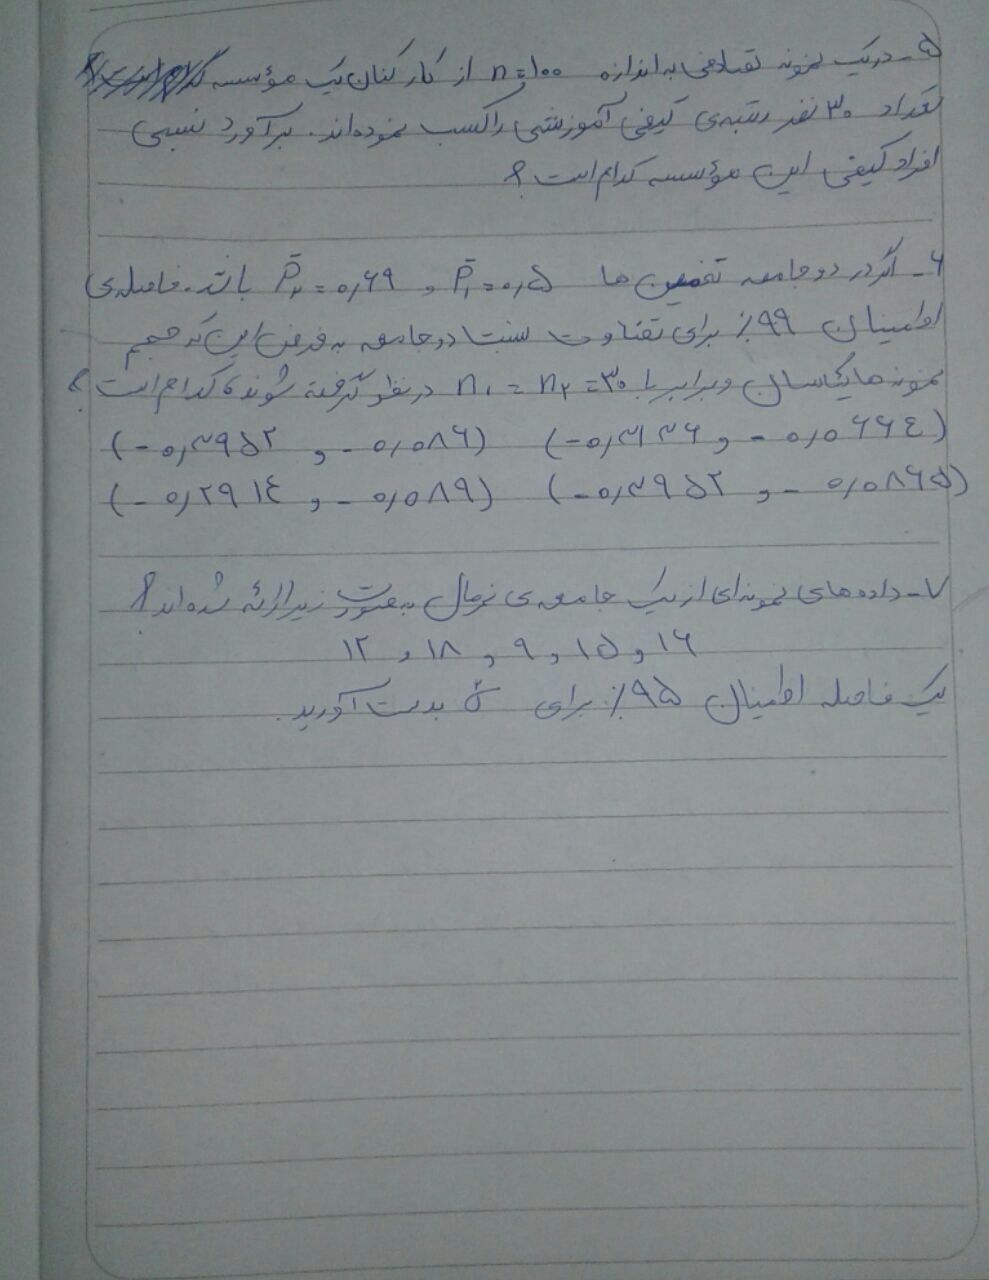 ۵- در یک نمونه تصادفی به اندازه n=۱۰۰ از کارکنان یک مؤسسه
تعداد ۳۰ نفر رتبه‌ی کیفی آموزشی را کسب نموده‌اند. برآورد نسبی
افراد کیفی این مؤسسه کدام است؟
۶- اگر در دو جامعه تخمین ها P̄₁=۰٫۵ و P̄₂=۰٫۶۹ باشد. فاصله‌ی
اطمینان ۹۹٪ برای تفاوت نسبت دو جامعه به فرض این که حجم
نمونه ها یکسان و برابر با n₁ = n₂ = ۳۰ در نظر گرفته شوند کدام است؟
(-۰٫۳۱۳۶ و -۰٫۰۶۶۴) (-۰٫۳۹۵۲ و -۰٫۰۸۶)
(-۰٫۳۹۵۲ و -۰٫۰۸۶۵) (-۰٫۲۹۱۴ و -۰٫۰۸۹)
۷- داده های نمونه‌ای از یک جامعه‌ی نرمال به صورت زیر ارائه شده‌اند؟
۱۶ و ۱۵ و ۹ و ۱۸ و ۱۲
یک فاصله اطمینان ۹۵٪ برای بدست آورید.